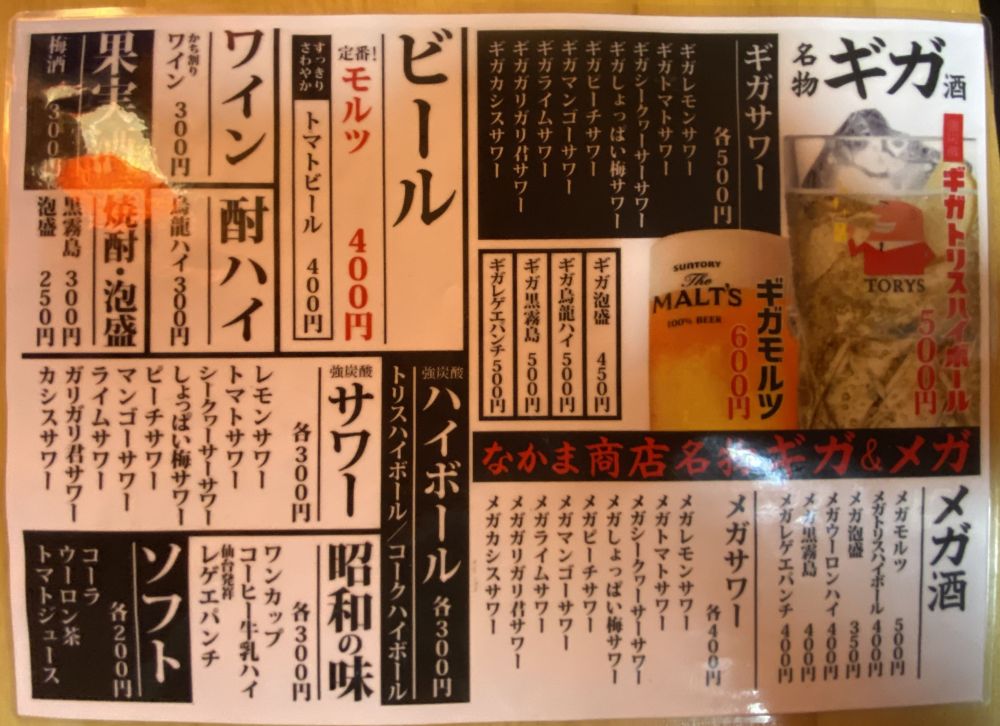 名物ギガ酒
ギガトリスハイボール
500円
TORYS
ギガモルツ
600円
SUNTORY
The
MALT'S
100% BEER
ギガサワー
各500円
ギガレモンサワー
ギガトマトサワー
ギガシークヮーサーサワー
ギガしょっぱい梅サワー
ギガピーチサワー
ギガマンゴーサワー
ギガライムサワー
ギガガリガリ君サワー
ギガカシスサワー
ギガ泡盛 450円
ギガ烏龍ハイ 500円
ギガ黒霧島 500円
ギガレゲエパンチ 500円
なかま商店名物ギガ&メガ
メガ酒
メガモルツ 500円
メガトリスハイボール 400円
メガ泡盛 350円
メガウーロンハイ 400円
メガ黒霧島 400円
メガレゲエパンチ 400円
メガサワー
各400円
メガレモンサワー
メガトマトサワー
メガシークヮーサーサワー
メガしょっぱい梅サワー
メガピーチサワー
メガマンゴーサワー
メガライムサワー
メガガリガリ君サワー
メガカシスサワー
ビール
定番!モルツ 400円
すっきり
さわやか
トマトビール 400円
ワイン
かち割り
ワイン 300円
果実酒
梅酒 300円
酎ハイ
烏龍ハイ 300円
焼酎・泡盛
黒霧島 300円
泡盛 250円
強炭酸
ハイボール 各300円
トリスハイボール/コークハイボール
強炭酸
サワー
各300円
レモンサワー
トマトサワー
シークヮーサーサワー
しょっぱい梅サワー
ピーチサワー
マンゴーサワー
ライムサワー
ガリガリ君サワー
カシスサワー
昭和の味
各300円
ワンカップ
コーヒー牛乳ハイ
仙台発祥
レゲエパンチ
ソフト
各200円
コーラ
ウーロン茶
トマトジュース